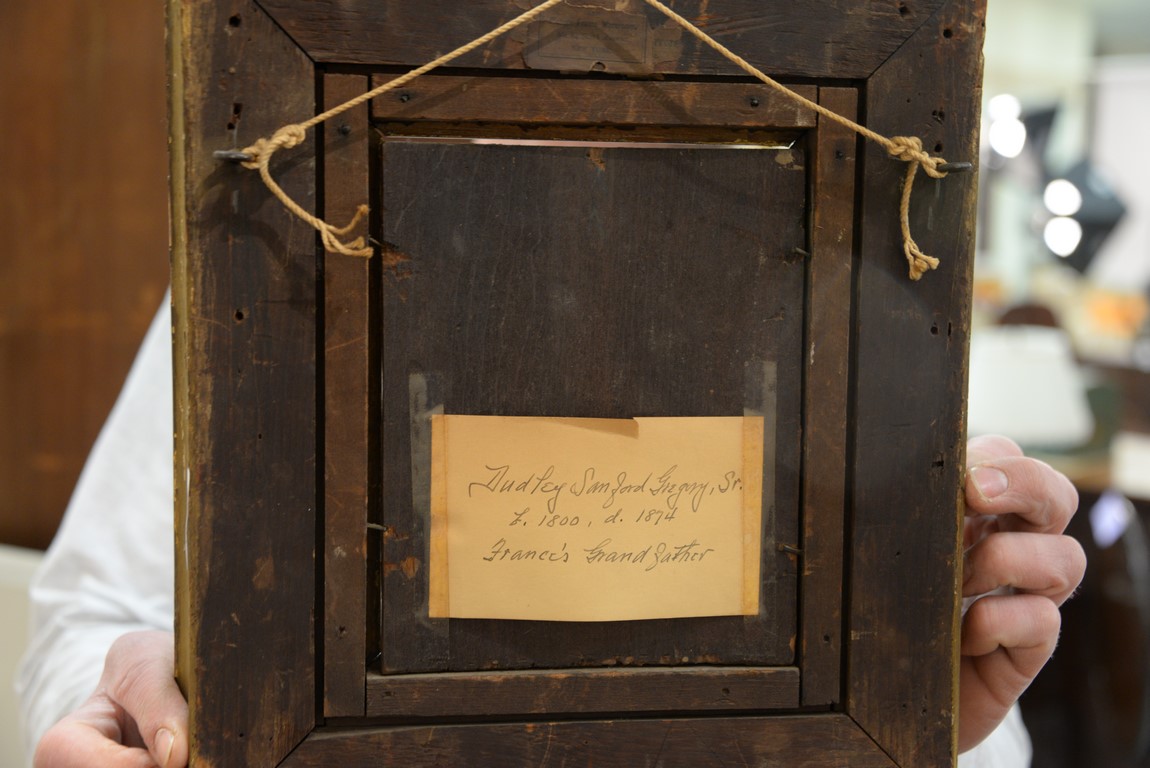 Dudley Sanford Gregory, Sr.
b. 1800, d. 1874
Franci's Grandfather